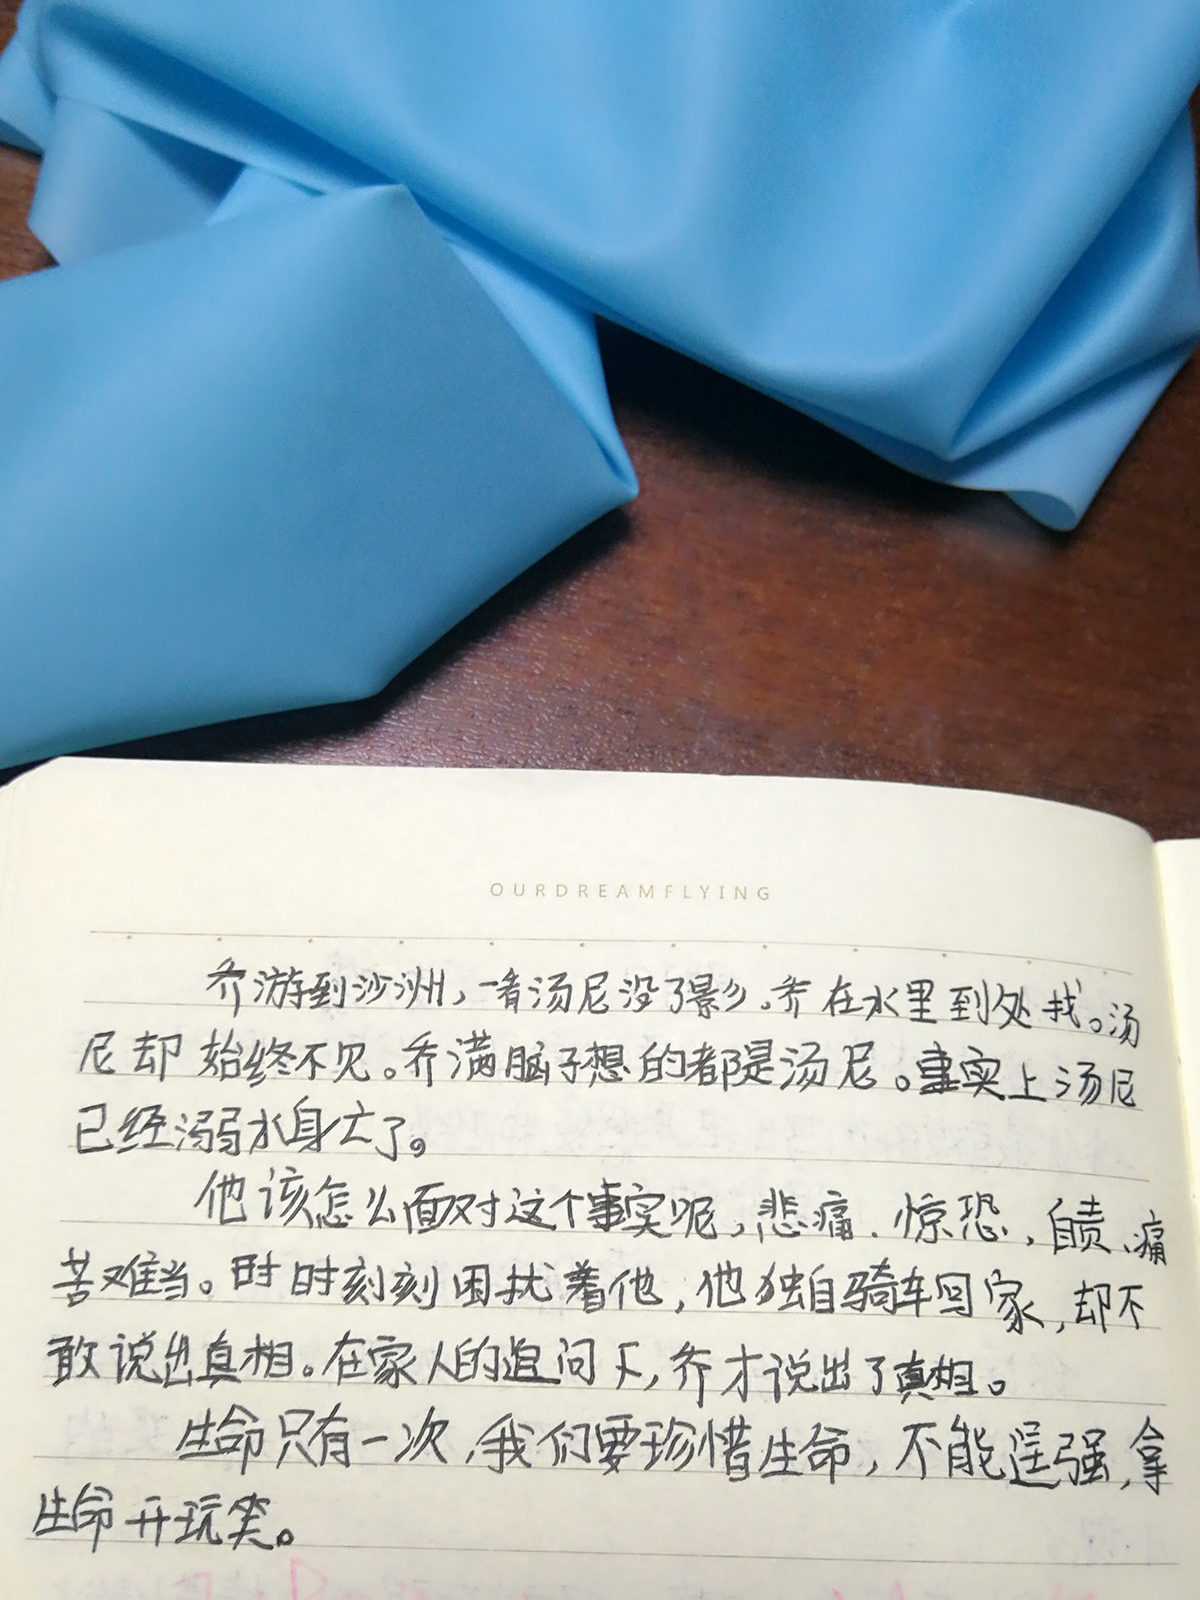 OURDREAMFLYING
乔游到沙洲，一看汤尼没了影乡。乔在水里到处找。汤
尼却始终不见。乔满脑子想的都是汤尼。事实上汤尼
已经溺水身亡了。
他该怎么面对这个事实呢，悲痛、惊恐，自责、痛
苦难当。时时刻刻困扰着他，他独自骑车回家，却不
敢说出真相。在家人的追问下，乔才说出了真相。
生命只有一次，我们要珍惜生命，不能逞强，拿
生命开玩笑。